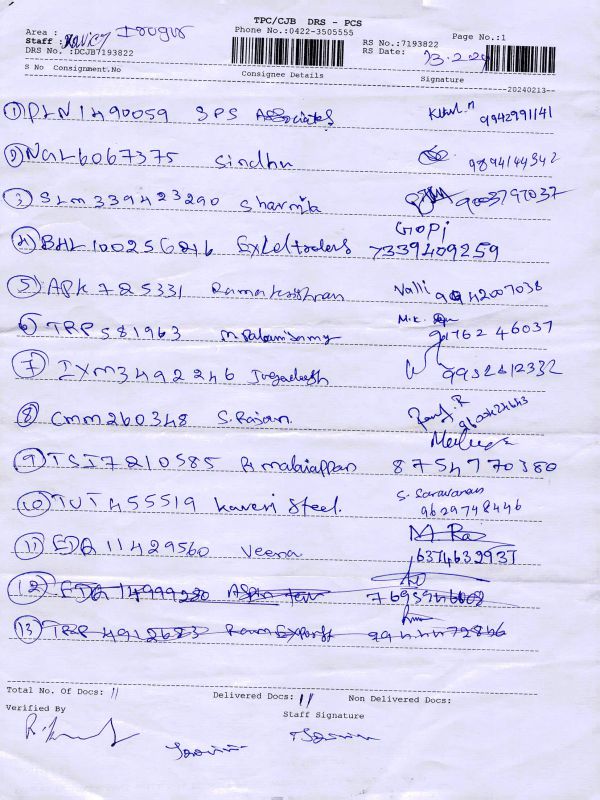 TPC/CJB DRS - PCS
Area : Irugur
Phone No.:0422-3505555
Page No.:1
Staff :
RS No.:7193822
DRS No.:DCJB7193822
RS Date: 13.2.24
S No Consignment.No Consignee Details Signature
20240213
1 PLN1490059 SPS Associates 9942991141
2 NGL6067375 Sindhu 9894144342
3 SLM339423290 Sharmila 9003797037
4 BHL100256846 Exceltraders Gopi 7339409259
5 APK725331 Ramakrishnan Valli 9942007038
6 TRP581963 M. Palanisamy M.K. 9176246037
7 IXM3492246 Jagadeesh 9932612332
8 CMM260348 S. Rajan.
9 TSI7210585 R. malaiappan 8754770380
10 TUT455519 Kaveri Steel. S. Saravanan 9629748446
11 EDQ11429560 Veena 6374632937
12
13
Total No. Of Docs: 11 Delivered Docs: 11 Non Delivered Docs:
Verified By Staff Signature